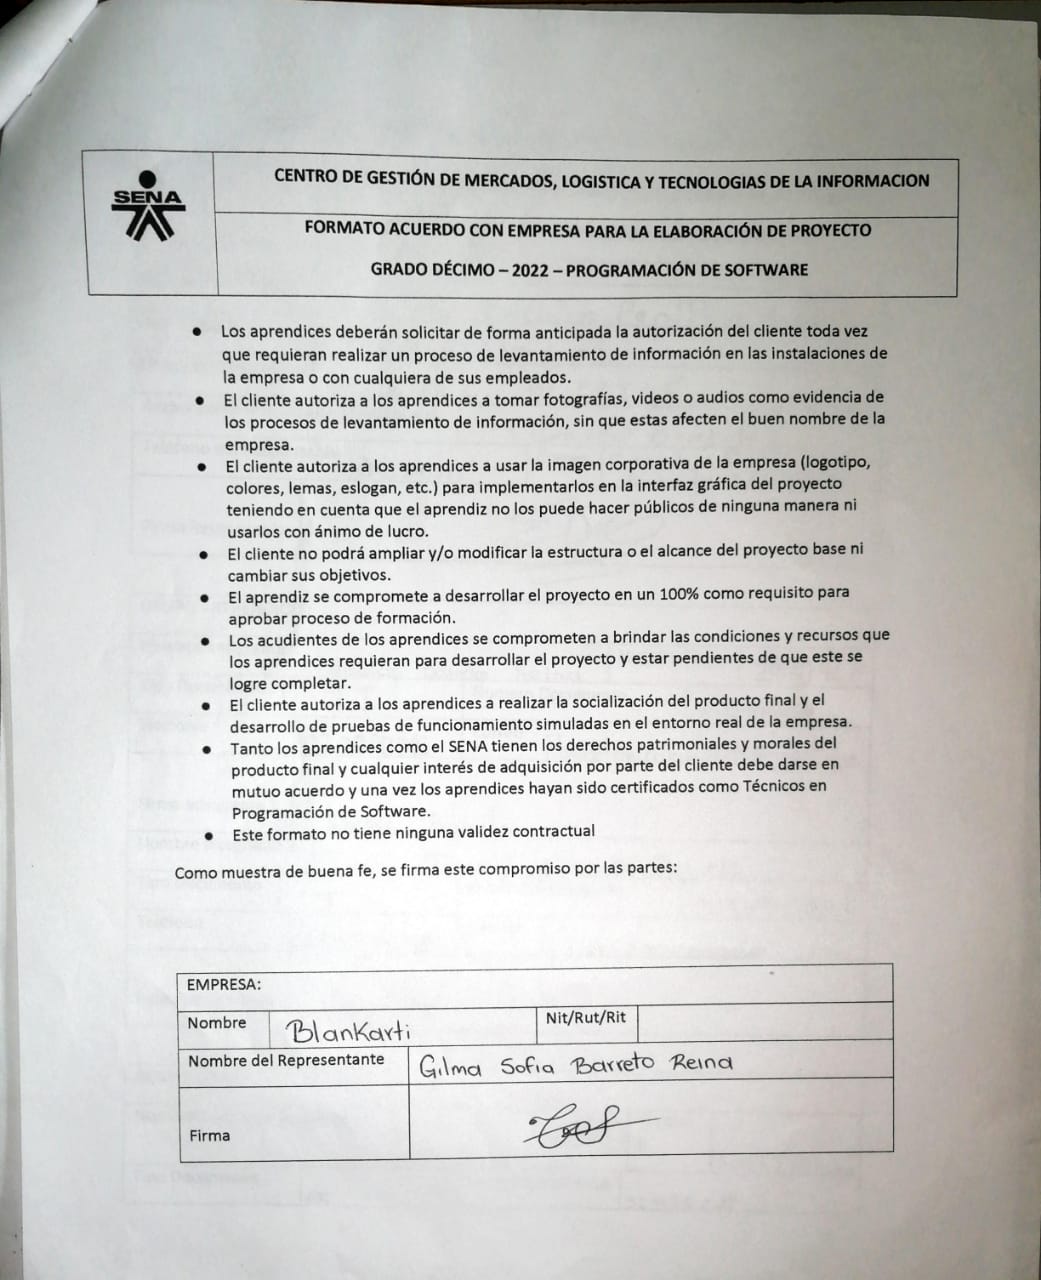 SENA
CENTRO DE GESTIÓN DE MERCADOS, LOGISTICA Y TECNOLOGIAS DE LA INFORMACION
FORMATO ACUERDO CON EMPRESA PARA LA ELABORACIÓN DE PROYECTO
GRADO DÉCIMO – 2022 – PROGRAMACIÓN DE SOFTWARE
• Los aprendices deberán solicitar de forma anticipada la autorización del cliente toda vez
que requieran realizar un proceso de levantamiento de información en las instalaciones de
la empresa o con cualquiera de sus empleados.
• El cliente autoriza a los aprendices a tomar fotografías, videos o audios como evidencia de
los procesos de levantamiento de información, sin que estas afecten el buen nombre de la
empresa.
• El cliente autoriza a los aprendices a usar la imagen corporativa de la empresa (logotipo,
colores, lemas, eslogan, etc.) para implementarlos en la interfaz gráfica del proyecto
teniendo en cuenta que el aprendiz no los puede hacer públicos de ninguna manera ni
usarlos con ánimo de lucro.
• El cliente no podrá ampliar y/o modificar la estructura o el alcance del proyecto base ni
cambiar sus objetivos.
• El aprendiz se compromete a desarrollar el proyecto en un 100% como requisito para
aprobar proceso de formación.
• Los acudientes de los aprendices se comprometen a brindar las condiciones y recursos que
los aprendices requieran para desarrollar el proyecto y estar pendientes de que este se
logre completar.
• El cliente autoriza a los aprendices a realizar la socialización del producto final y el
desarrollo de pruebas de funcionamiento simuladas en el entorno real de la empresa.
• Tanto los aprendices como el SENA tienen los derechos patrimoniales y morales del
producto final y cualquier interés de adquisición por parte del cliente debe darse en
mutuo acuerdo y una vez los aprendices hayan sido certificados como Técnicos en
Programación de Software.
• Este formato no tiene ninguna validez contractual
Como muestra de buena fe, se firma este compromiso por las partes:
EMPRESA:
Nombre Blankarti Nit/Rut/Rit
Nombre del Representante Gilma Sofia Barreto Reina
Firma